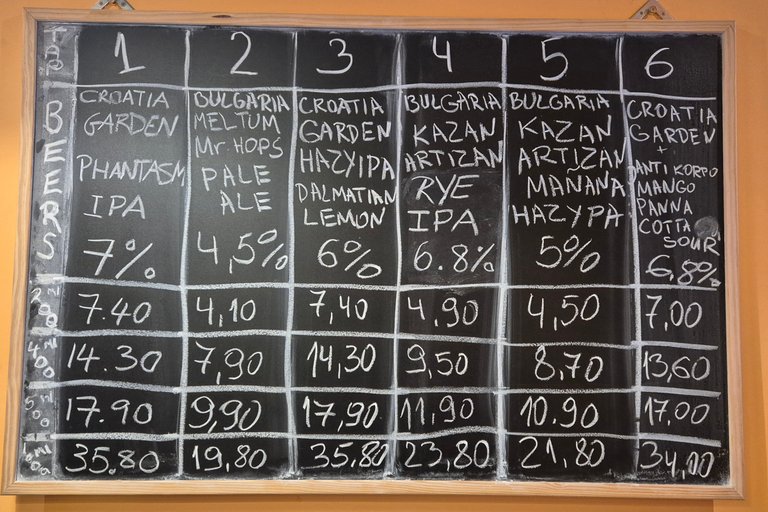 TAP BEERS
1
CROATIA
GARDEN
PHANTASM
IPA
7%
2
BULGARIA
MELTUM
Mr. HOPS
PALE
ALE
4,5%
3
CROATIA
GARDEN
HAZY IPA
DALMATIAN
LEMON
6%
4
BULGARIA
KAZAN
ARTIZAN
RYE
IPA
6.8%
5
BULGARIA
KAZAN
ARTIZAN
MAÑANA
HAZYPA
5%
6
CROATIA
GARDEN
+
ANTI KORPO
MANGO
PANNA
COTTA
SOUR
6,8%
200 ml 7.40 4,10 7,40 4.90 4,50 7,00
400 ml 14.30 7,90 14,30 9,50 8,70 13,60
500 ml 17.90 9,90 17,90 11,90 10.90 17,00
1000 ml 35.80 19,80 35,80 23,80 21,80 34,00